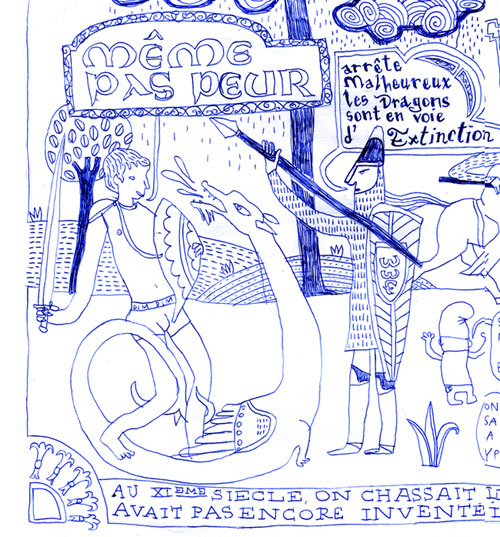 MÊME
PAS PEUR
arrête
Malheureux
les Dragons
sont en voie
d' Extinction
334
ON
SA
A
YP
AU XIEME SIECLE, ON CHASSAIT L
AVAIT PAS ENCORE INVENTÉ